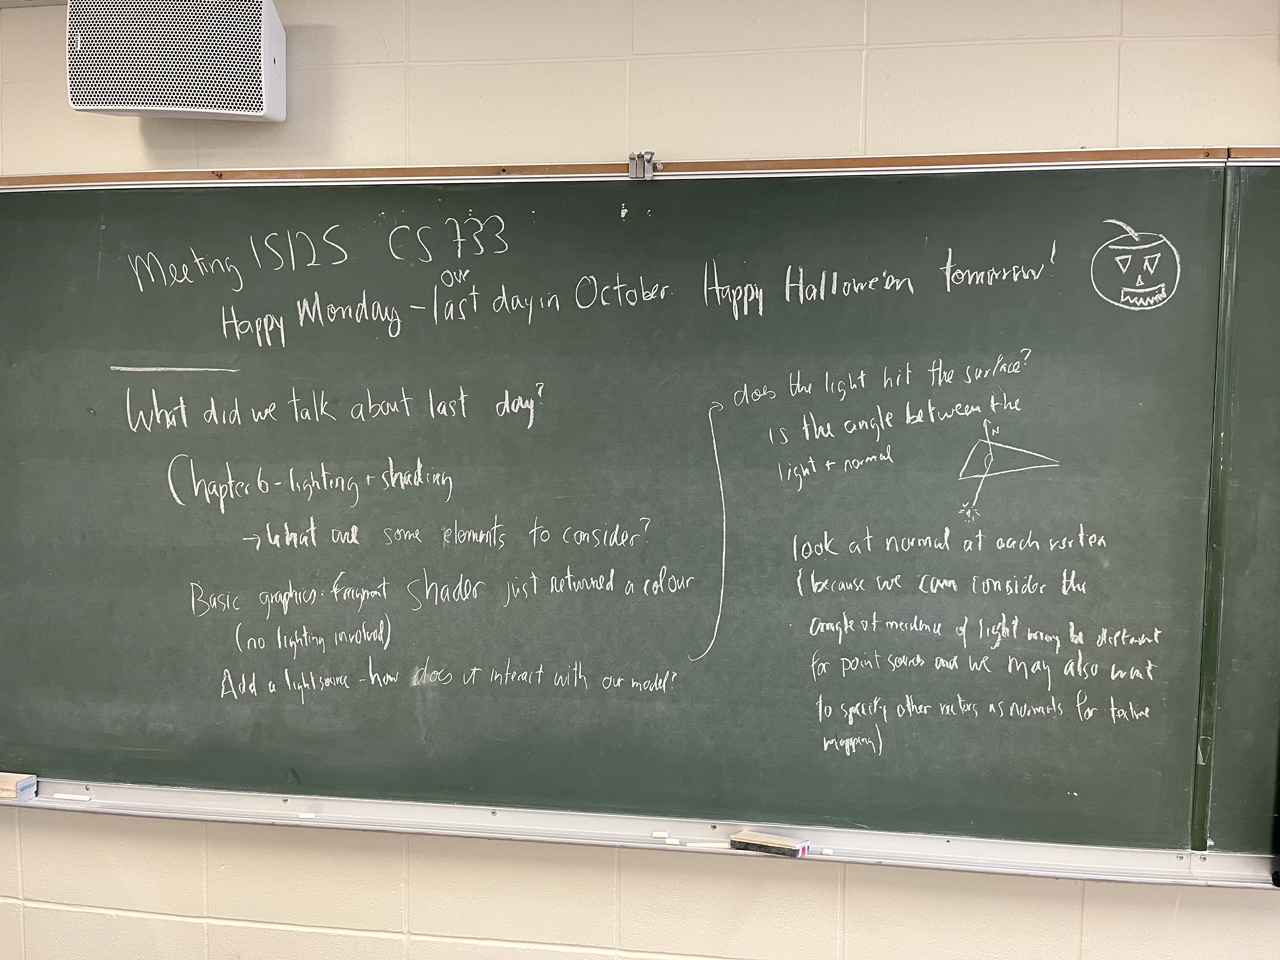 Meeting 15/25 CS 733
Happy Monday - our last day in October. Happy Hallowe'en tomorrow!
What did we talk about last day?
Chapter 6 - lighting + shading
→ What are some elements to consider?
Basic graphics: fragment shader just returned a colour
(no lighting involved)
Add a light source - how does it interact with our model?
does the light hit the surface?
is the angle between the
light + normal
N
look at normal at each vertex
(because we can consider the
angle of incidence of light may be different
for point sources and we may also want
to specify other vectors as normals for texture
mapping)